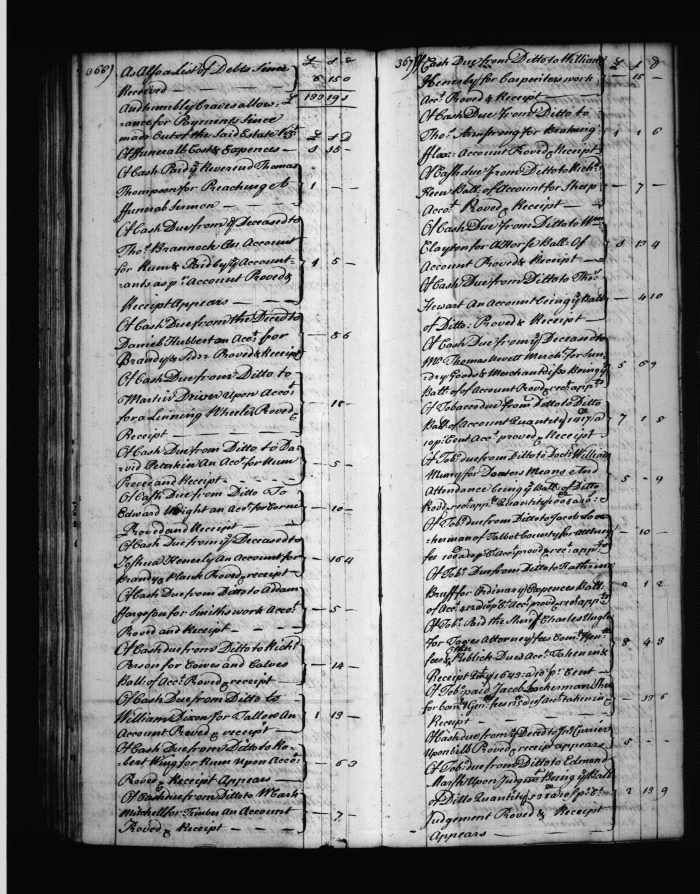 366)
£ s d
As Also a List of Debts Since
Received — 6 15 0
£ 133 19 1
And humbly Craves allow-
-ance for Payments Since
made Out of the Said Estate Vizt £ s D
Of funerall Cost & Expences — 8 15 —
Of Cash Paid ye Reverend Thomas
Thompson for Preaching A
ffuneral Sermon — 1 — —
Of Cash Due from ye Deceased to
Thos. Brannock An Account
for Rum & Paid by ye Account-
-ants as pr. Account Proved &
Receipt Appears — 4 5 —
Of Cash Due from the Deced to
Daniel Hubbert an Acct. for
Brandy & Sider Proved & Receipt — 8 6
Of Cash Due from Ditto to
Martin Driver Upon Accot
for a Linning Wheele Proved &
Receipt — 18 —
Of Cash Due from Ditto to Da-
-vid Peterkin An Acct. for Rum
Proved and Receipt — 5 —
Of Cash Due from Ditto To
Edward Wright an Acct. for Corne
Proved and Receipt — 10 —
Of Cash Due from ye Deceased to
Joshua Kennerly An Account for
Brandy & Plank Proved & receipt — 16 4
Of Cash Due from Ditto to Addam
for Smiths work Accot.
Proved and Receipt — 5 —
Of Cash due from Ditto to Richd
Person for Cowes and Calves
Ball. of Acct. Proved & receipt — 14 —
Of Cash Due from Ditto to
William Dixon for Tallow An
Account Proved & receipt — 1 13 —
Of Cash Due from Ditto to Ro-
-bert Wing for Rum Upon Accot.
Proved & Receipt Appears — 6 3
Of Cash due from Ditto to Mark
Mitchell for Timber An Account
Proved & Receipt — 7 —
367)
£ s D
Of Cash Due from Ditto to William
for Carpenters work
Acct. Proved & Receipt — 15 —
Of Cash Due from Ditto to
Thos. Armstrong for Breaking
fflax: Account Proved & Receipt 1 1 6
Of Cash due From Ditto to Richd.
Ball. of Account for Sheep
Accot. Proved & Receipt — 7 —
Of Cash Due from Ditto to Wm.
Clayton for A Horse Ball. Of
Account Proved & Receipt — 3 13 4
Of Cash Due from Ditto to Thos.
Stewart An Account being ye Ball.
of Ditto: Proved & Receipt — 4 10
Of Cash Due from ye Deceased to
Mr. Thomas Nevett Mercht. for Sun-
-dry Goods & Merchandizes Being ye
Ball. of Account Proved rect. appts. 5 6 9
Of Tobacco due from Ditto to Ditto
Ball. of Account Quantity 1417 a
10 pr. Cent Acct. proved & Receipt 7 1 8
Of Tob: due from Ditto to Doctr. William
Murray for Docters Means And
Attendance being ye Ball. of Ditto
5 — 9
Of Tob: due from Ditto to Jacob Loc-
-kerman of Talbot County for attorney
fee — 10 —
Of Tob: Due from Ditto to Katherine
Bruff for Ordinary Expences Ball.
2 1 2
Of Tob: Paid the Sherif Charles Ungle
For Taxes Attorney fees Comy. Gen.
fees & Other Publick Dues Acct. Taken in &
Receipt 8 4 3
Of Tob: paid Jacob Lockerman Sher
for Comy. Genl. fees
Receipt — 13 6
Of Cash due from ye Deced to Jno. Currier
Upon bill Proved & receipt appears 5 — —
Of Tob: due from Ditto to Edmond
Marsh Upon Judgmt. Being ye Ball.
of Ditto Quantity
Judgement Proved & Receipt
Appears — 2 13 9